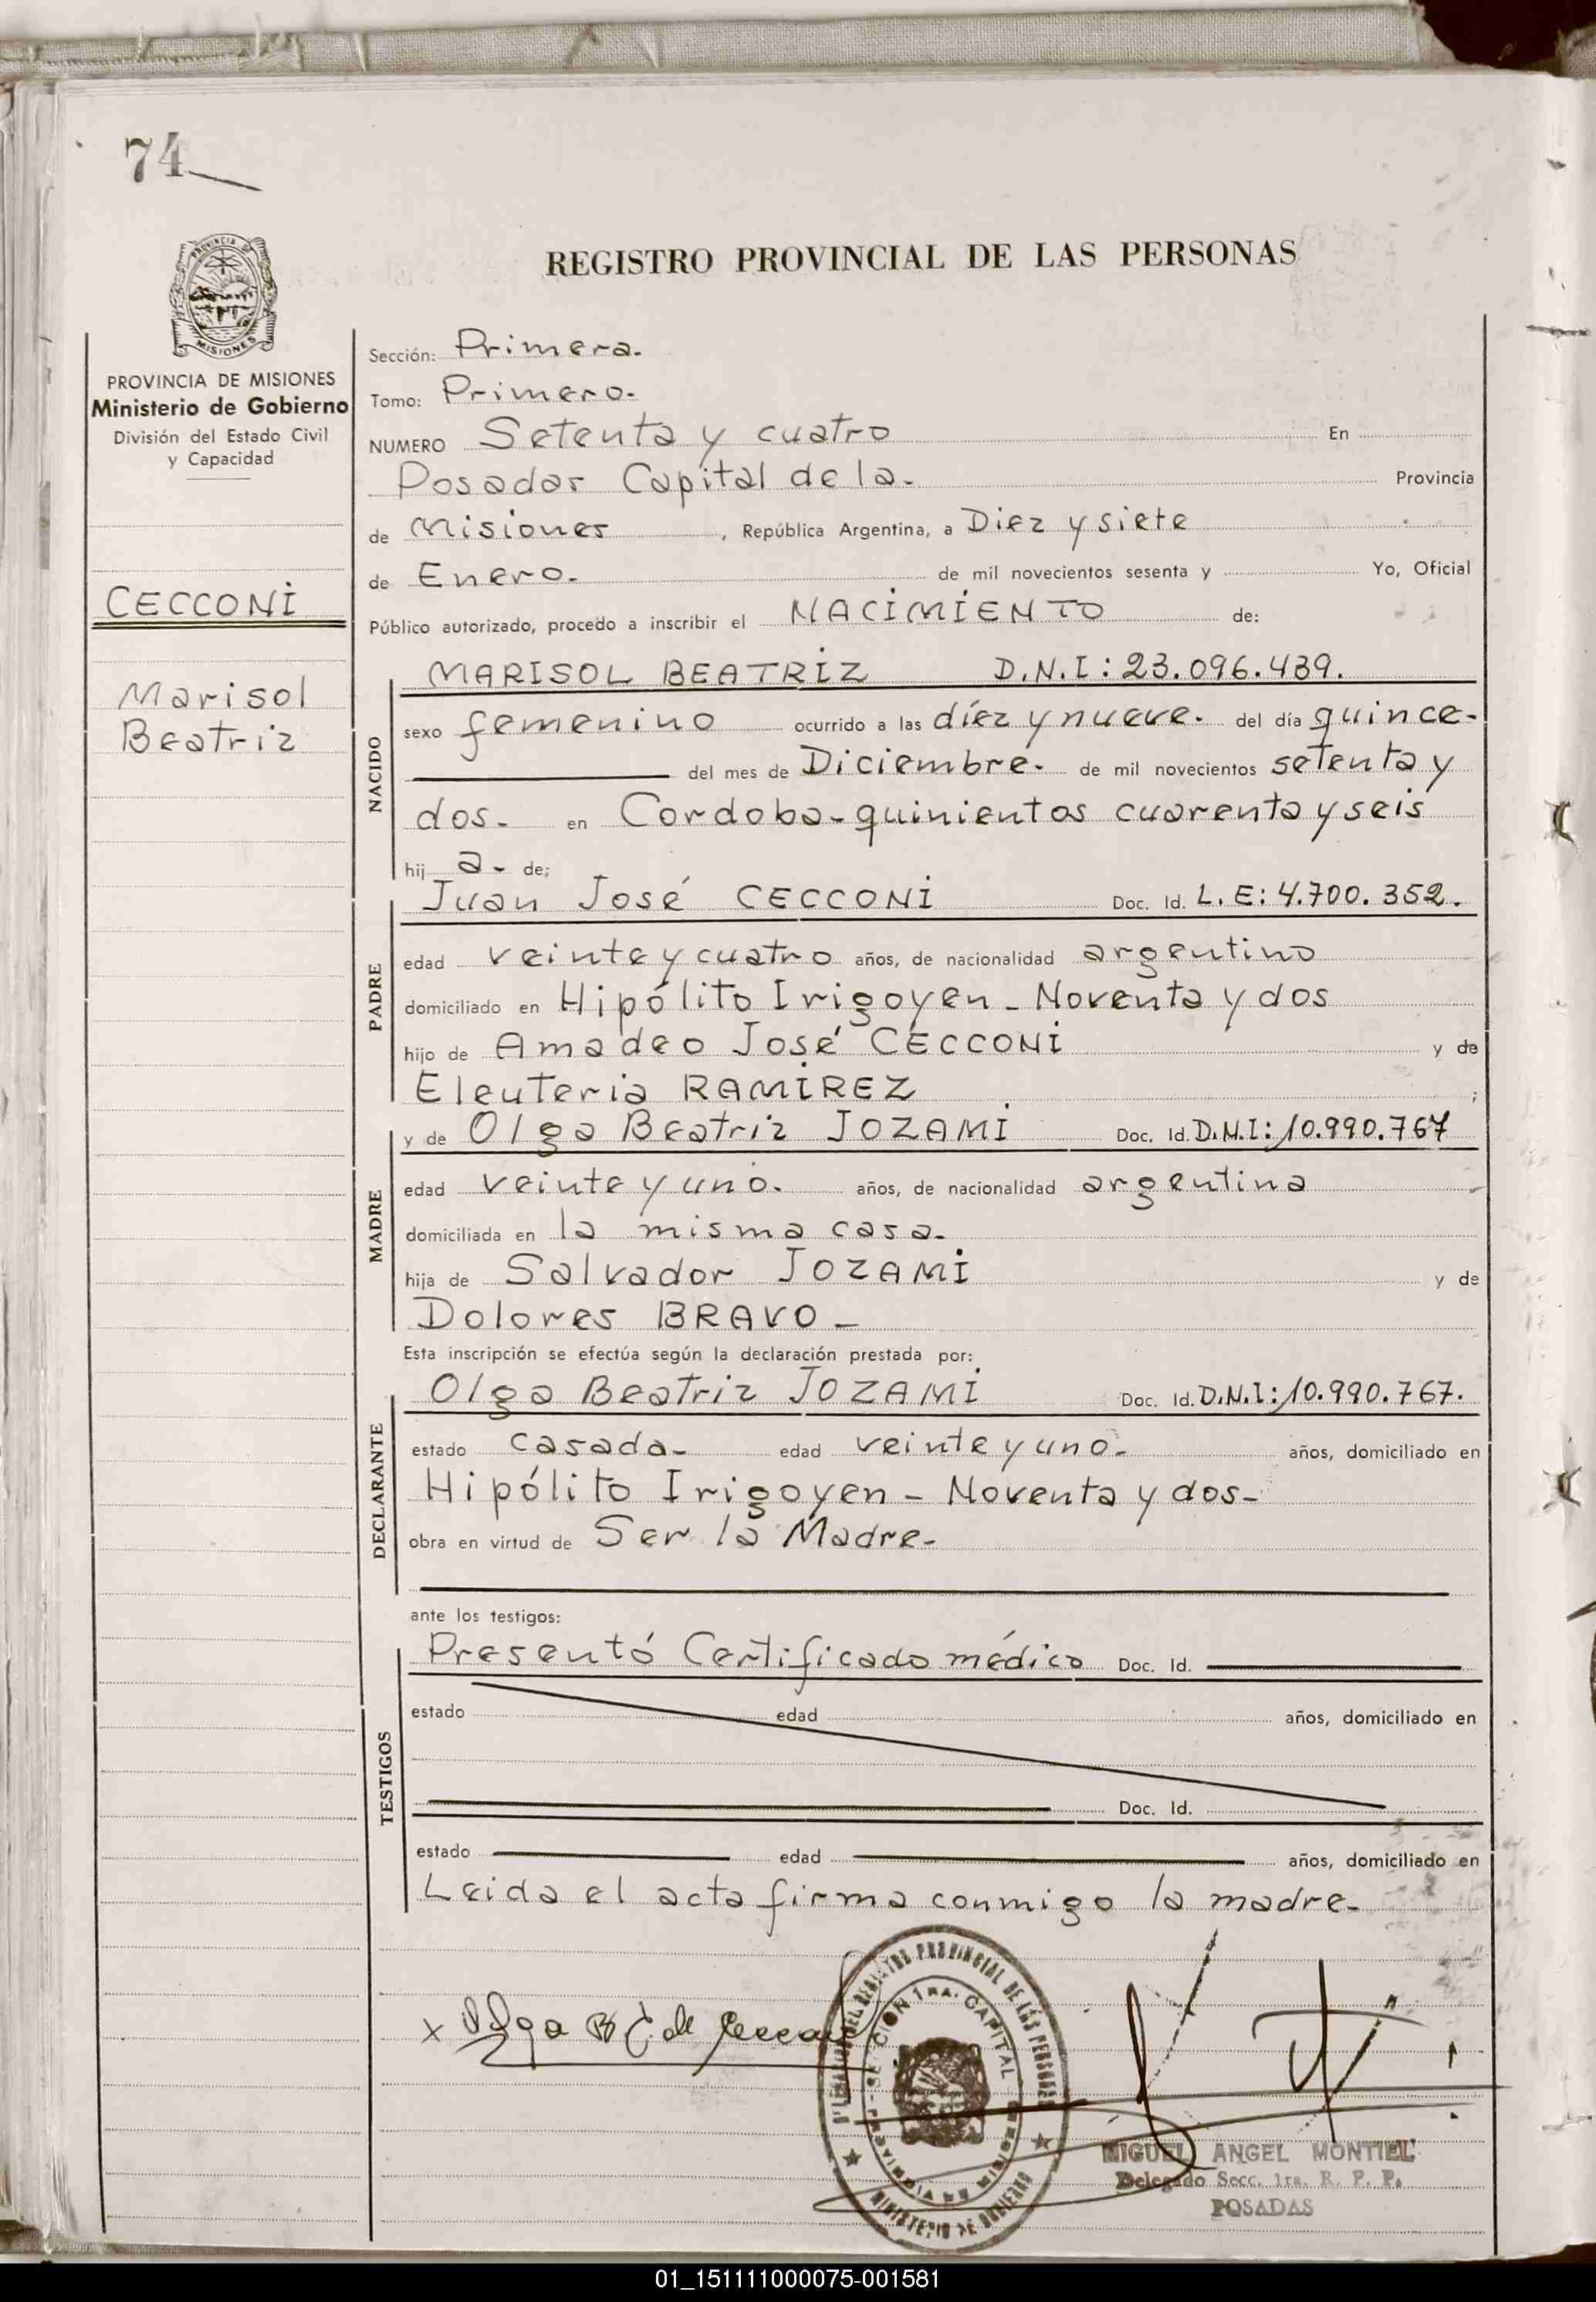 74
REGISTRO PROVINCIAL DE LAS PERSONAS
PROVINCIA DE
MISIONES
PROVINCIA DE MISIONES
Ministerio de Gobierno
División del Estado Civil
y Capacidad
CECCONI
Marisol
Beatriz
Sección: Primera.
Tomo: Primero.
NUMERO Setenta y cuatro En
Posadas Capital de la. Provincia
de Misiones, República Argentina, a Diez y siete
de Enero. de mil novecientos sesenta y Yo, Oficial
Público autorizado, procedo a inscribir el NACIMIENTO de:
NACIDO
MARISOL BEATRIZ D.N.I: 23.096.439.
sexo femenino ocurrido a las díez y nueve. del día quince-
del mes de Diciembre. de mil novecientos setenta y
dos. en Cordoba-quinientos cuarenta y seis
hij a. de;
PADRE
Juan José CECCONI Doc. Id. L.E: 4.700.352.
edad veinte y cuatro años, de nacionalidad argentino
domiciliado en Hipólito Irigoyen - Noventa y dos
hijo de Amadeo José CECCONI y de
Eleuteria RAMIREZ ;
MADRE
y de Olga Beatriz JOZAMI Doc. Id. D.N.I: 10.990.767
edad veinte y uno. años, de nacionalidad argentina
domiciliada en la misma casa.
hija de Salvador JOZAMI y de
Dolores BRAVO -
Esta inscripción se efectúa según la declaración prestada por:
DECLARANTE
Olga Beatriz JOZAMI Doc. Id. D.N.I: 10.990.767.
estado casada- edad veinte y uno. años, domiciliado en
Hipólito Irigoyen - Noventa y dos-
obra en virtud de Ser la Madre.
ante los testigos:
TESTIGOS
Presentó Certificado médico Doc. Id.
estado edad años, domiciliado en
Doc. Id.
estado edad años, domiciliado en
Leida el acta firma conmigo la madre.
x Olga B J. de Cecconi
REGISTRO PROVINCIAL DE LAS PERSONAS
SECCION 1RA. CAPITAL
PROVINCIA DE MISIONES
MINISTERIO DE GOBIERNO
MIGUEL ANGEL MONTIEL
Delegado Secc. 1ra. R. P. P.
POSADAS
01_151111000075-001581